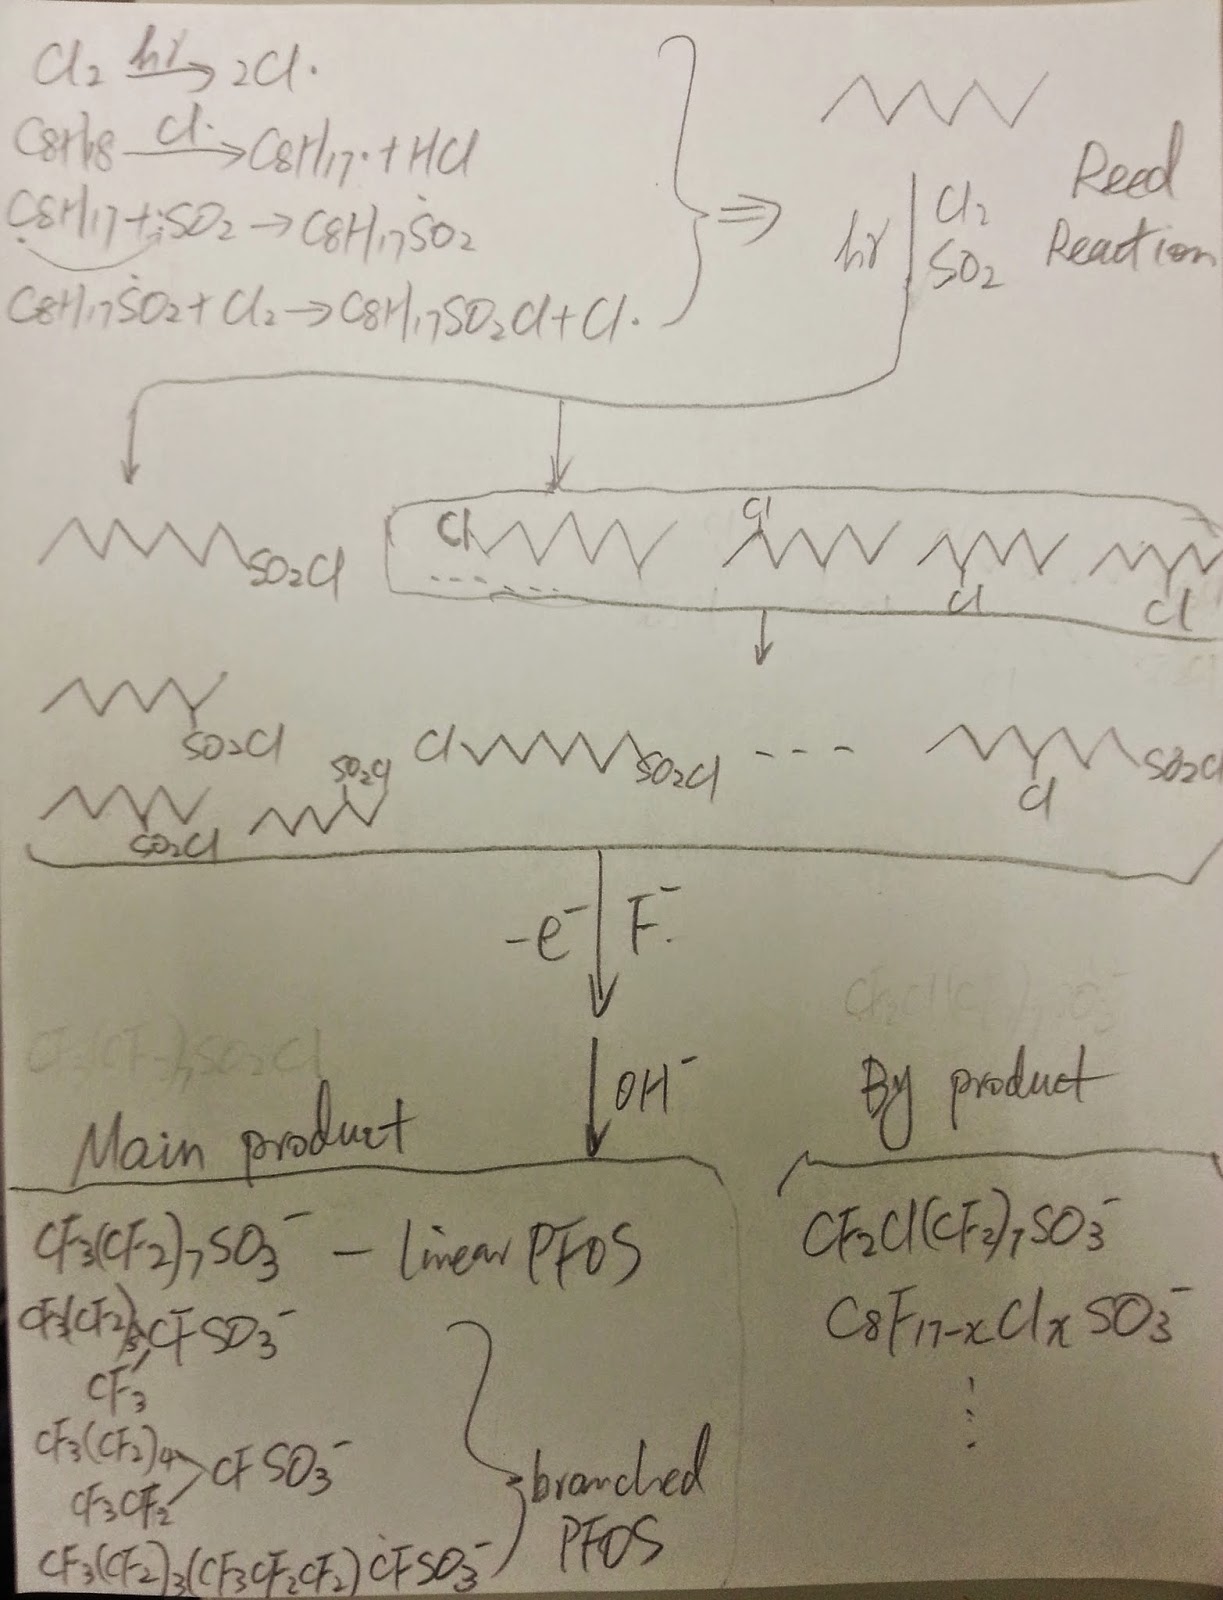 Cl₂ hγ → 2Cl·
C8H18 Cl· → C8H17· + HCl
C8H17 + :SO₂ → C8H17ṠO₂
C8H17ṠO₂ + Cl₂ → C8H17SO₂Cl + Cl·
⇒
hγ Cl₂
SO₂
Reed
Reaction
SO₂Cl
Cl
Cl
Cl
Cl
SO₂Cl
SO₂Cl
SO₂Cl
Cl SO₂Cl
- - -
Cl SO₂Cl
-e⁻ F⁻
OH⁻
Main product
CF₃(CF₂)₇SO₃⁻ — linear PFOS
CF₃(CF₂)₅CFSO₃⁻
CF₃
CF₃(CF₂)₄
CF₃CF₂
CFSO₃⁻
CF₃(CF₂)₃(CF₃CF₂CF₂)CFSO₃⁻
branched
PFOS
By product
CF₂Cl(CF₂)₇SO₃⁻
C8F17-xClxSO₃⁻